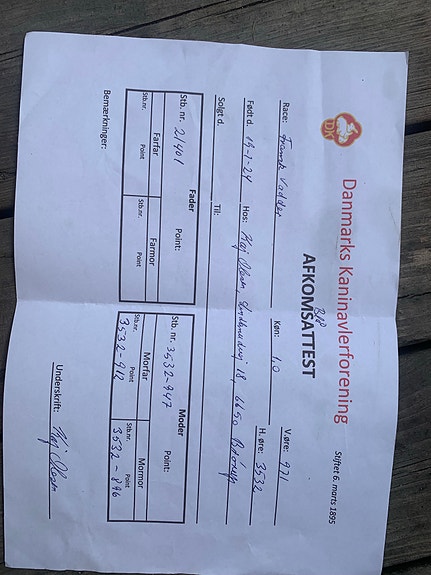 Danmarks Kaninavlerforening
Stiftet 6. marts 1895
DK
AFKOMSATTEST
Race: Fransk Vædder Køn: 1.0 V.øre: 971
H.øre: 3532
Født d. 15-1-24 Hos: Kaj Olsen, 18, 6650 Brørup
Solgt d. Til:
Fader
Stb. nr. 21401 Point:
Farfar Farmor
Stb.nr. Point Stb.nr. Point
Moder
Stb. nr. 3532-947 Point:
Morfar Mormor
Stb.nr. Point Stb.nr. Point
3532-912 3532-896
Bemærkninger:
Underskrift: Kaj Olsen